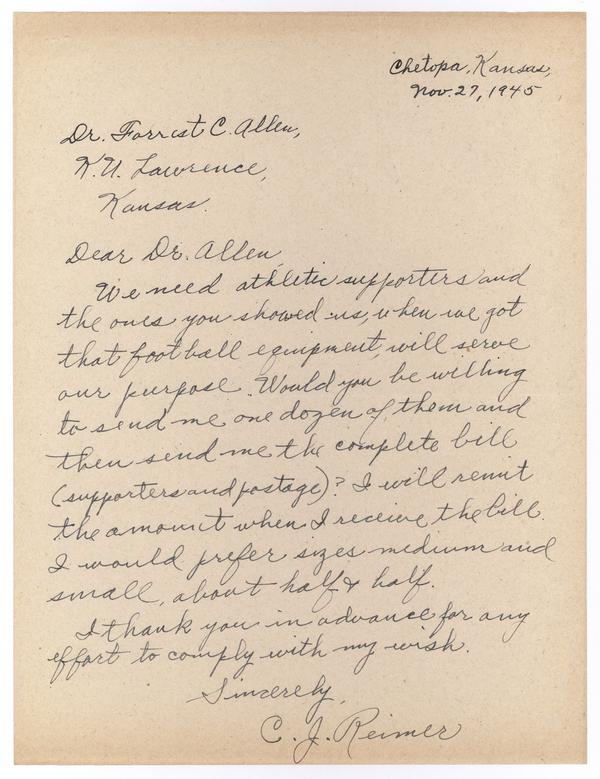 Chetopa, Kansas,
Nov. 27, 1945
Dr. Forrest C. Allen,
K.U. Lawrence,
Kansas.
Dear Dr. Allen,
We need athletic supporters and
the ones you showed us, when we got
that football equipment, will serve
our purpose. Would you be willing
to send me one dozen of them and
then send me the complete bill
(supporters and postage)? I will remit
the amount when I receive the bill.
I would prefer sizes medium and
small, about half & half.
I thank you in advance for any
effort to comply with my wish.
Sincerely,
C. J. Reimer